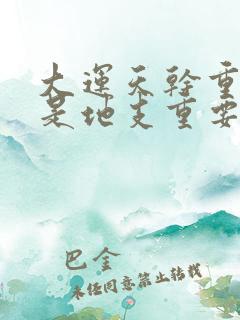 大運天幹重
是地支重要
巴金
未经同意禁止转载